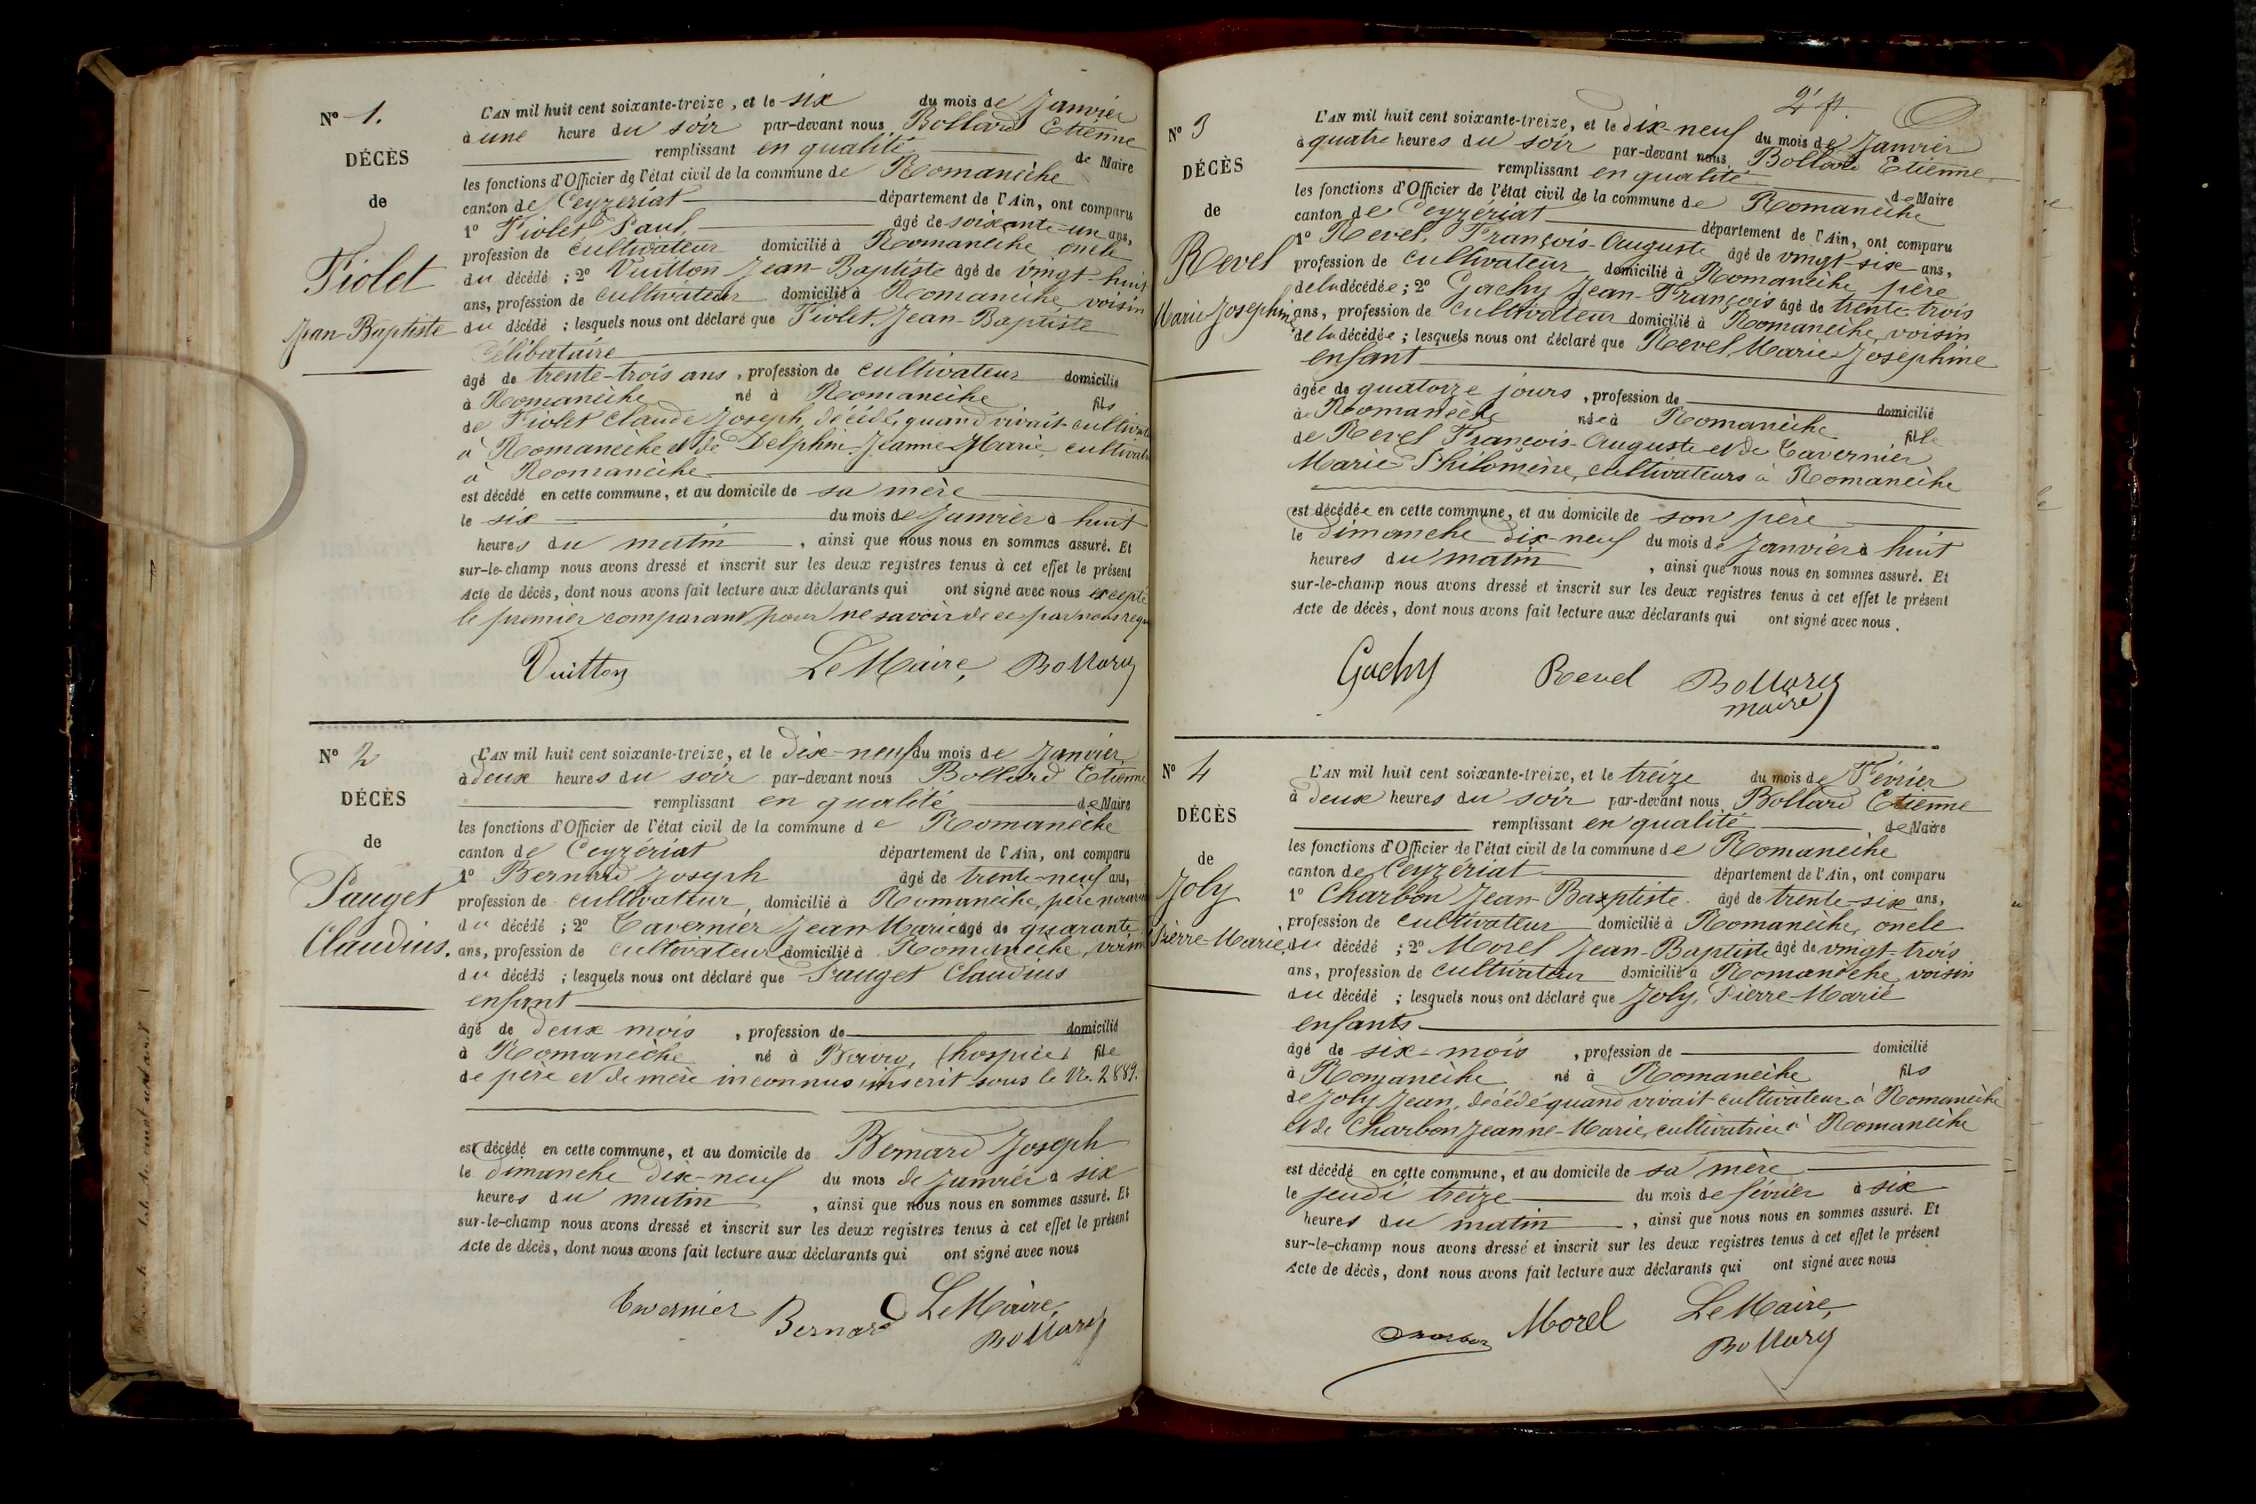 N° 1.
DÉCÈS
de
Fiolet
Jean-Baptiste
L'AN mil huit cent soixante-treize, et le six du mois de Janvier
à une heure du soir par-devant nous Bollard Etienne
remplissant en qualité de Maire
les fonctions d'Officier de l'état civil de la commune de Romanèche
canton de Ceyzériat département de l'Ain, ont comparu
1° Fiolet Paul, âgé de soixante-un ans,
profession de cultivateur domicilié à Romanèche, oncle
du décédé ; 2° Vuitton Jean-Baptiste âgé de vingt-huit
ans, profession de cultivateur domicilié à Romanèche, voisin
du décédé ; lesquels nous ont déclaré que Fiolet, Jean-Baptiste
célibataire
âgé de trente-trois ans, profession de cultivateur domicilié
à Romanèche né à Romanèche fils
de Fiolet Claude Joseph, décédé, quand vivait cultivat
à Romanèche et de Delphin Jeanne-Marie, cultivat
à Romanèche
est décédé en cette commune, et au domicile de sa mère
le six du mois de Janvier à huit
heures du matin, ainsi que nous nous en sommes assuré. Et
sur-le-champ nous avons dressé et inscrit sur les deux registres tenus à cet effet le présent
Acte de décès, dont nous avons fait lecture aux déclarants qui ont signé avec nous excepté
le premier comparant pour ne savoir de ce par nous requ
Vuitton Le Maire, Bollard
N° 2
DÉCÈS
de
Pauget
Claudius.
L'AN mil huit cent soixante-treize, et le dix-neuf du mois de Janvier
à deux heures du soir par-devant nous Bollard Etienne
remplissant en qualité de Maire
les fonctions d'Officier de l'état civil de la commune de Romanèche
canton de Ceyzériat département de l'Ain, ont comparu
1° Bernard Joseph âgé de trente-neuf ans,
profession de cultivateur, domicilié à Romanèche, père nourri
du décédé ; 2° Tavernier Jean-Marie âgé de quarante
ans, profession de cultivateur domicilié à Romanèche, voisin
du décédé ; lesquels nous ont déclaré que Pauget Claudius
enfant
âgé de deux mois, profession de domicilié
à Romanèche né à Bourg, (hospice) fils
de père et de mère inconnus inscrit sous le N°. 2889.
est décédé en cette commune, et au domicile de Bernard Joseph
le dimanche dix-neuf du mois de Janvier à six
heures du matin, ainsi que nous nous en sommes assuré. Et
sur-le-champ nous avons dressé et inscrit sur les deux registres tenus à cet effet le présent
Acte de décès, dont nous avons fait lecture aux déclarants qui ont signé avec nous
Tavernier Bernard Le Maire,
Bollard
2e f.
N° 3
DÉCÈS
de
Revel
Marie Josephine
L'AN mil huit cent soixante-treize, et le dix-neuf du mois de Janvier
à quatre heures du soir par-devant nous Bollard Etienne
remplissant en qualité de Maire
les fonctions d'Officier de l'état civil de la commune de Romanèche
canton de Ceyzériat département de l'Ain, ont comparu
1° Revel, François-Auguste âgé de vingt-six ans,
profession de cultivateur domicilié à Romanèche, père
de la décédée ; 2° Gachy Jean-François âgé de trente-trois
ans, profession de cultivateur domicilié à Romanèche, voisin
de la décédée ; lesquels nous ont déclaré que Revel Marie Josephine
enfant
âgée de quatorze jours, profession de domicilié
à Romanèche née à Romanèche fille
de Revel François-Auguste et de Tavernier
Marie-Philomène, cultivateurs à Romanèche
est décédée en cette commune, et au domicile de son père
le dimanche dix-neuf du mois de Janvier à huit
heures du matin, ainsi que nous nous en sommes assuré. Et
sur-le-champ nous avons dressé et inscrit sur les deux registres tenus à cet effet le présent
Acte de décès, dont nous avons fait lecture aux déclarants qui ont signé avec nous.
Gachy Revel Bollard
maire
N° 4
DÉCÈS
de
Joly
Pierre-Marie.
L'AN mil huit cent soixante-treize, et le treize du mois de Février
à deux heures du soir par-devant nous Bollard Etienne
remplissant en qualité de Maire
les fonctions d'Officier de l'état civil de la commune de Romanèche
canton de Ceyzériat département de l'Ain, ont comparu
1° Charbon Jean-Baptiste. âgé de trente-six ans,
profession de cultivateur domicilié à Romanèche, oncle
du décédé ; 2° Morel Jean-Baptiste âgé de vingt-trois
ans, profession de cultivateur domicilié à Romanèche, voisin
du décédé ; lesquels nous ont déclaré que Joly, Pierre-Marie
enfants
âgé de six-mois, profession de domicilié
à Romanèche né à Romanèche fils
de Joly Jean, décédé quand vivait cultivateur à Romanèche
et de Charbon Jeanne-Marie, cultivatrice à Romanèche
est décédé en cette commune, et au domicile de sa mère
le jeudi treize du mois de février à six
heures du matin, ainsi que nous nous en sommes assuré. Et
sur-le-champ nous avons dressé et inscrit sur les deux registres tenus à cet effet le présent
Acte de décès, dont nous avons fait lecture aux déclarants qui ont signé avec nous
Charbon Morel Le Maire,
Bollard